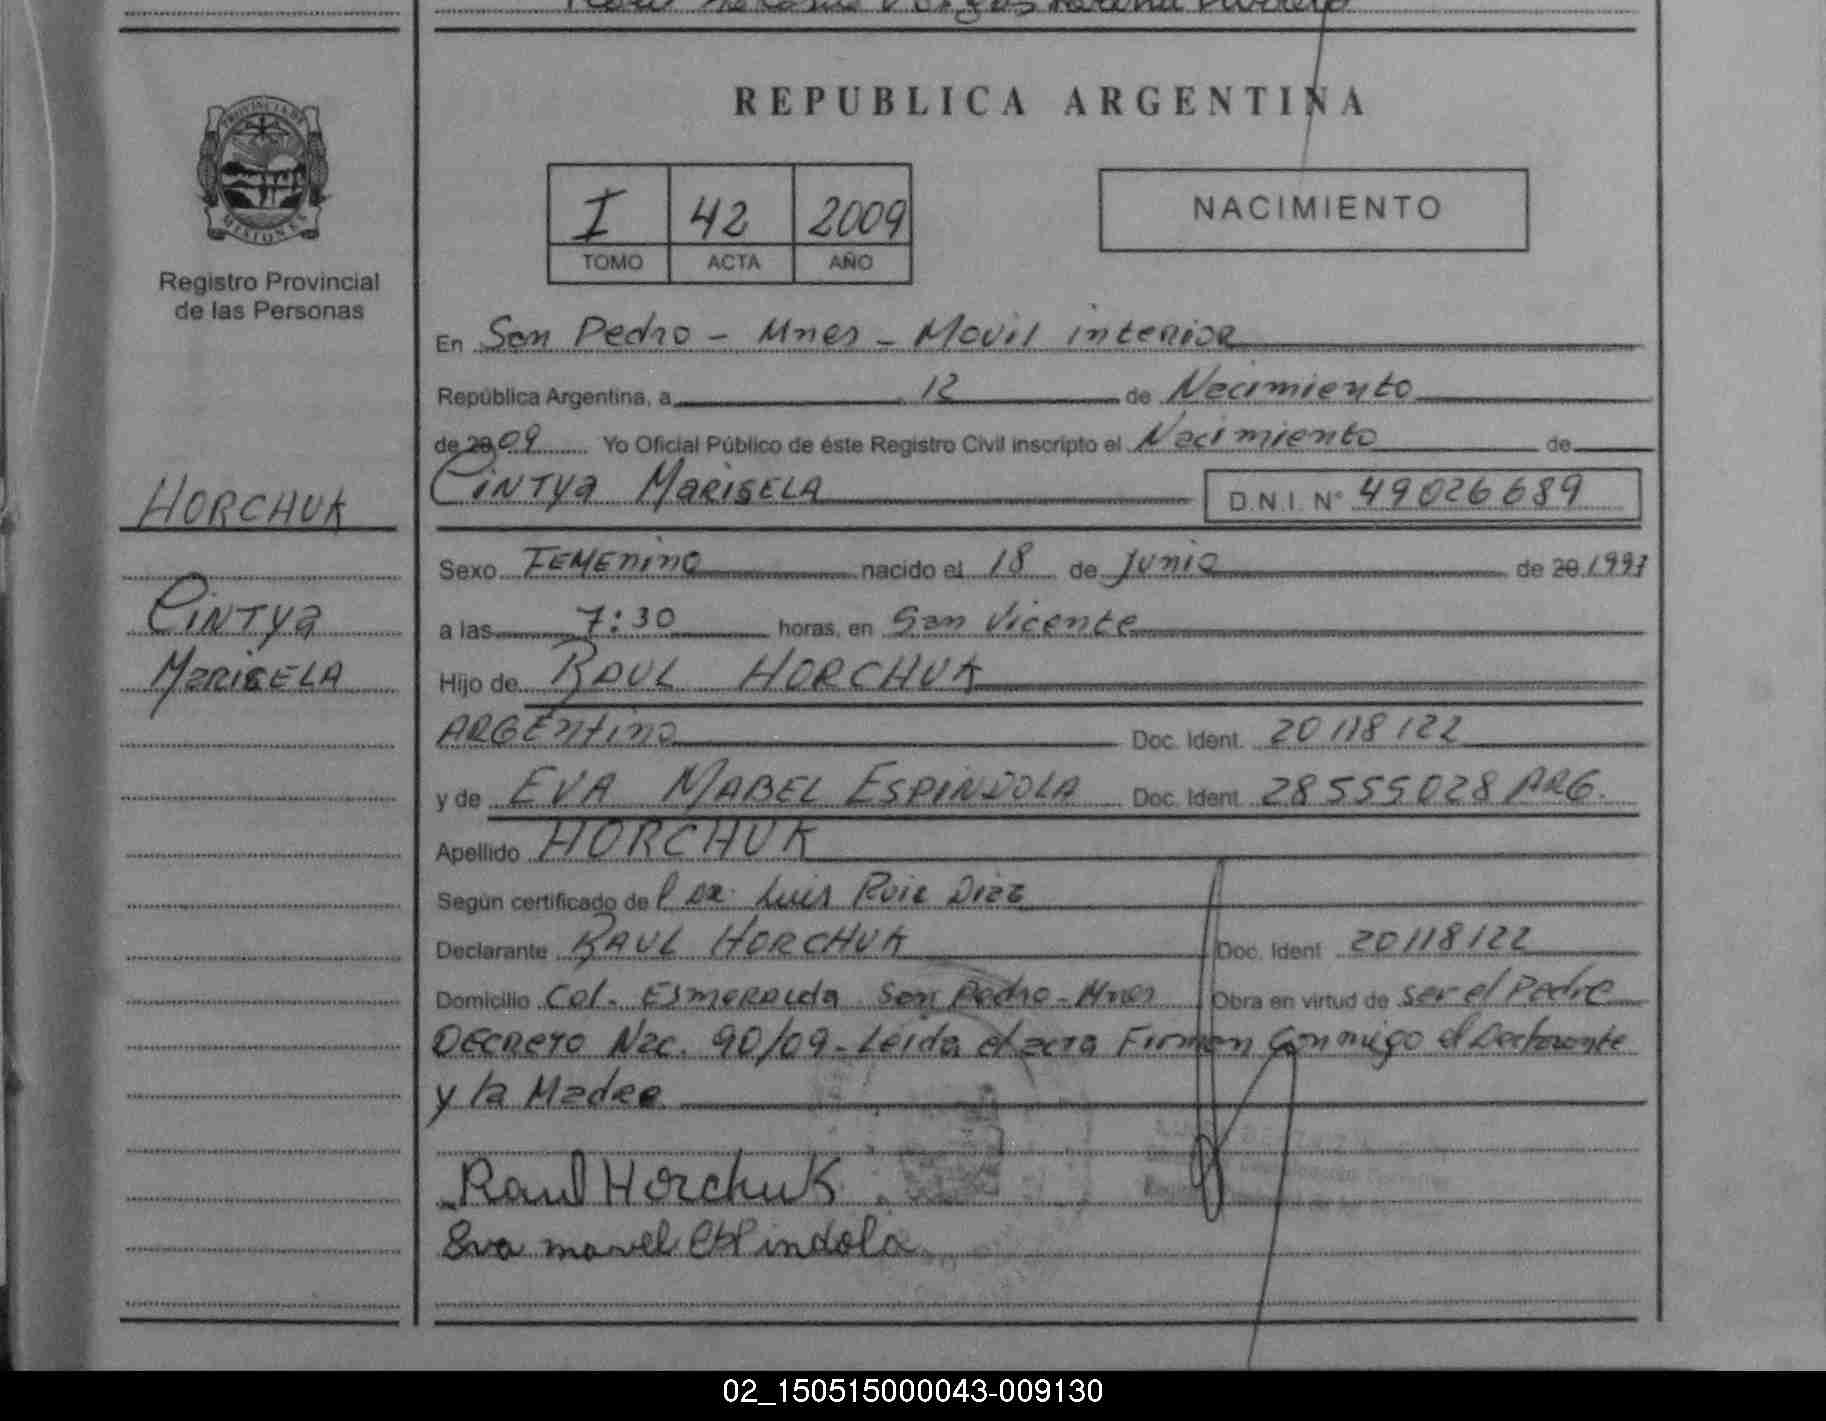 REPUBLICA ARGENTINA
PROVINCIA DE
MISIONES
Registro Provincial
de las Personas
I 42 2009
TOMO ACTA AÑO
NACIMIENTO
En San Pedro - Mnes - Movil interior
República Argentina, a 12 de Nacimiento
de 2009 Yo Oficial Público de éste Registro Civil inscripto el Nacimiento de
CINTYA MARISELA D.N.I. N° 49026689
HORCHUK
CINTYA
MARISELA
Sexo FEMENINO nacido el 18 de Junio de 20 1997
a las 7:30 horas, en San Vicente
Hijo de RAUL HORCHUK
ARGENTINO Doc. Ident. 20118122
y de EVA MABEL ESPINDOLA Doc. Ident. 28555028 ARG.
Apellido HORCHUK
Según certificado de l DR. Luis Ruiz Diaz
Declarante RAUL HORCHUK Doc. Ident 20118122
Domicilio Col. Esmeralda San Pedro - Mnes Obra en virtud de ser el Padre
Decreto Nac. 90/09 - Leida el acta Firman Conmigo el Declarante
y la Madre
Raul Horchuk
Eva mavel espindola
02_150515000043-009130